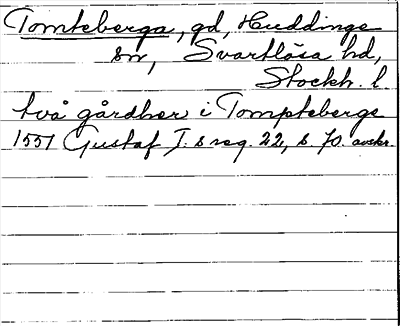 Tomteberga, gd, Huddinge
sn, Svartlösa hd,
Stockh. l
två gårdher i Tompteberge
1551 Gustaf I. s reg. 22, s. 70. avskr.